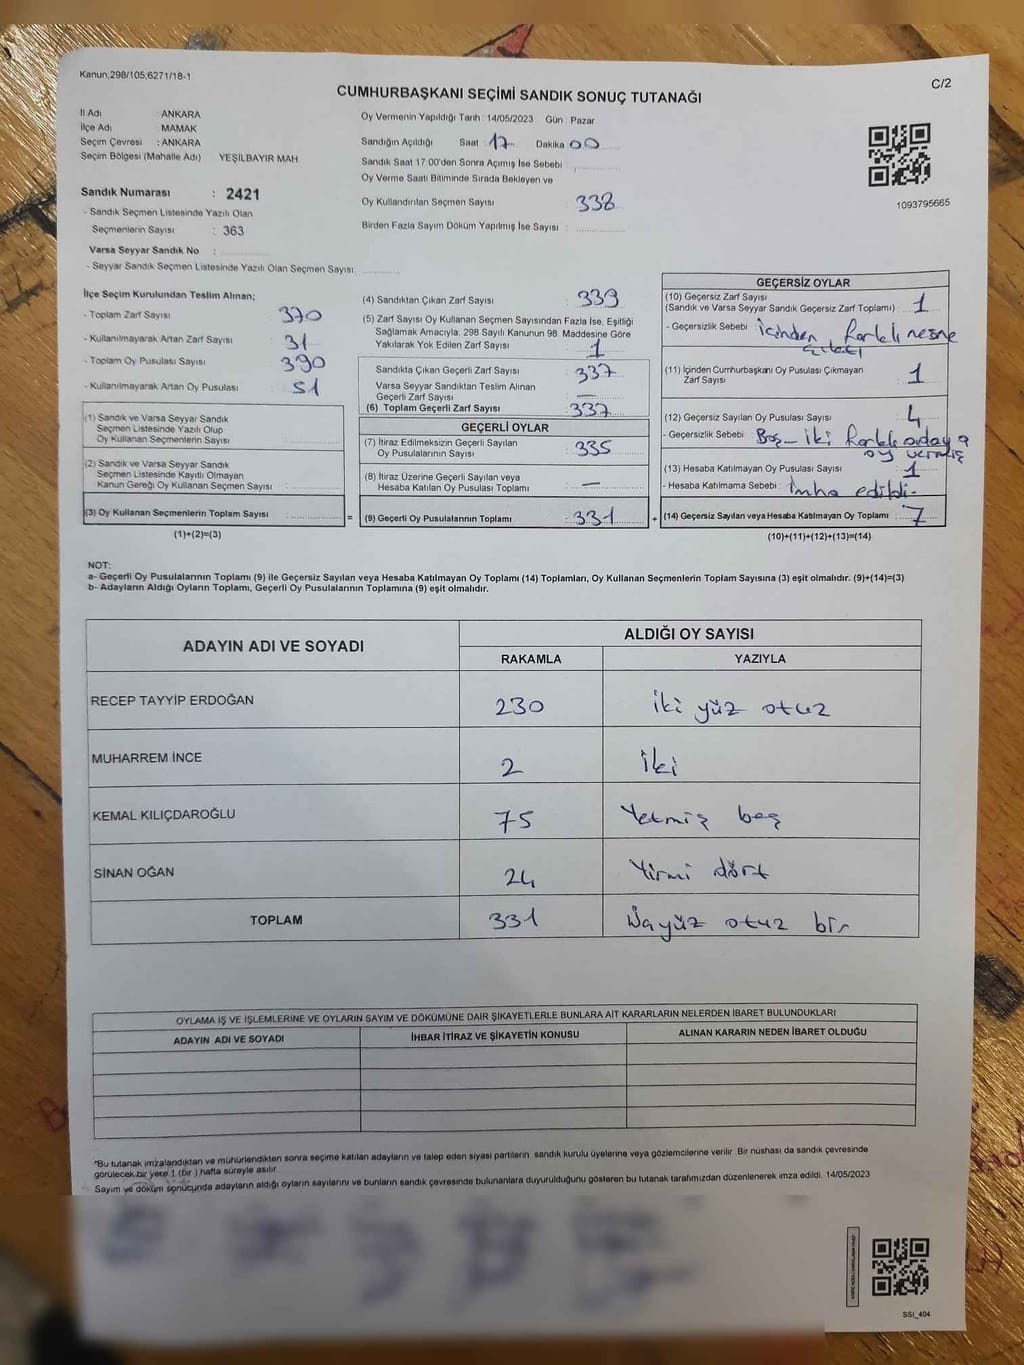 Kanun;298/105;6271/18-1
C/2
CUMHURBAŞKANI SEÇİMİ SANDIK SONUÇ TUTANAĞI
İl Adı : ANKARA
İlçe Adı : MAMAK
Seçim Çevresi : ANKARA
Seçim Bölgesi (Mahalle Adı) YEŞİLBAYIR MAH
Sandık Numarası : 2421
- Sandık Seçmen Listesinde Yazılı Olan
Seçmenlerin Sayısı : 363
Varsa Seyyar Sandık No :
- Seyyar Sandık Seçmen Listesinde Yazılı Olan Seçmen Sayısı:
Oy Vermenin Yapıldığı Tarih : 14/05/2023 Gün : Pazar
Sandığın Açıldığı Saat 17 Dakika 00
Sandık Saat 17:00'den Sonra Açımış İse Sebebi :
Oy Verme Saati Bitiminde Sırada Bekleyen ve
Oy Kullandırılan Seçmen Sayısı : 338
Birden Fazla Sayım Döküm Yapılmış İse Sayısı :
1093795665
İlçe Seçim Kurulundan Teslim Alınan;
- Toplam Zarf Sayısı : 370
- Kullanılmayarak Artan Zarf Sayısı : 31
- Toplam Oy Pusulası Sayısı : 390
- Kullanılmayarak Artan Oy Pusulası : 51
(1) Sandık ve Varsa Seyyar Sandık
Seçmen Listesinde Yazılı Olup
Oy Kullanan Seçmenlerin Sayısı :
(2) Sandık ve Varsa Seyyar Sandık
Seçmen Listesinde Kayıtlı Olmayan
Kanun Gereği Oy Kullanan Seçmen Sayısı :
(3) Oy Kullanan Seçmenlerin Toplam Sayısı :
(1)+(2)=(3)
(4) Sandıktan Çıkan Zarf Sayısı : 339
(5) Zarf Sayısı Oy Kullanan Seçmen Sayısından Fazla İse, Eşitliği
Sağlamak Amacıyla; 298 Sayılı Kanunun 98. Maddesine Göre
Yakılarak Yok Edilen Zarf Sayısı : 1
Sandıkta Çıkan Geçerli Zarf Sayısı : 337
Varsa Seyyar Sandıktan Teslim Alınan
Geçerli Zarf Sayısı : —
(6) Toplam Geçerli Zarf Sayısı : 337
GEÇERLİ OYLAR
(7) İtiraz Edilmeksizin Geçerli Sayılan
Oy Pusulalarının Sayısı : 335
(8) İtiraz Üzerine Geçerli Sayılan veya
Hesaba Katılan Oy Pusulaları Toplamı : —
= (9) Geçerli Oy Pusulalarının Toplamı : 331 +
GEÇERSİZ OYLAR
(10) Geçersiz Zarf Sayısı
(Sandık ve Varsa Seyyar Sandık Geçersiz Zarf Toplamı) : 1
- Geçersizlik Sebebi : içinden farklı nesne
çıktı
(11) İçinden Cumhurbaşkanı Oy Pusulası Çıkmayan
Zarf Sayısı : 1
(12) Geçersiz Sayılan Oy Pusulası Sayısı : 4
- Geçersizlik Sebebi : Boş - iki farklı adaya
oy vermiş
(13) Hesaba Katılmayan Oy Pusulası Sayısı : 1
- Hesaba Katılmama Sebebi : imha edildi.
(14) Geçersiz Sayılan veya Hesaba Katılmayan Oy Toplamı : 7
(10)+(11)+(12)+(13)=(14)
NOT:
a- Geçerli Oy Pusulalarının Toplamı (9) ile Geçersiz Sayılan veya Hesaba Katılmayan Oy Toplamı (14) Toplamları, Oy Kullanan Seçmenlerin Toplam Sayısına (3) eşit olmalıdır. (9)+(14)=(3)
b- Adayların Aldığı Oyların Toplamı, Geçerli Oy Pusulalarının Toplamına (9) eşit olmalıdır.
ADAYIN ADI VE SOYADI ALDIĞI OY SAYISI
RAKAMLA YAZIYLA
RECEP TAYYİP ERDOĞAN 230 iki yüz otuz
MUHARREM İNCE 2 iki
KEMAL KILIÇDAROĞLU 75 Yetmiş beş
SİNAN OĞAN 24 Yirmi dört
TOPLAM 331 Üçyüz otuz bir
OYLAMA İŞ VE İŞLEMLERİNE VE OYLARIN SAYIM VE DÖKÜMÜNE DAİR ŞİKAYETLERLE BUNLARA AİT KARARLARIN NELERDEN İBARET BULUNDUKLARI
ADAYIN ADI VE SOYADI İHBAR İTİRAZ VE ŞİKAYETİN KONUSU ALINAN KARARIN NEDEN İBARET OLDUĞU
*Bu tutanak imzalandıktan ve mühürlendikten sonra seçime katılan adayların ve talep eden siyasi partilerin sandık kurulu üyelerine veya gözlemcilerine verilir. Bir nüshası da sandık çevresinde
görülecek bir yere 1 (bir ) hafta süreyle asılır.
Sayım ve döküm sonucunda adayların aldığı oyların sayılarını ve bunların sandık çevresinde bulunanlara duyurulduğunu gösteren bu tutanak tarafımızdan düzenlenerek imza edildi. 14/05/2023
SSI_404